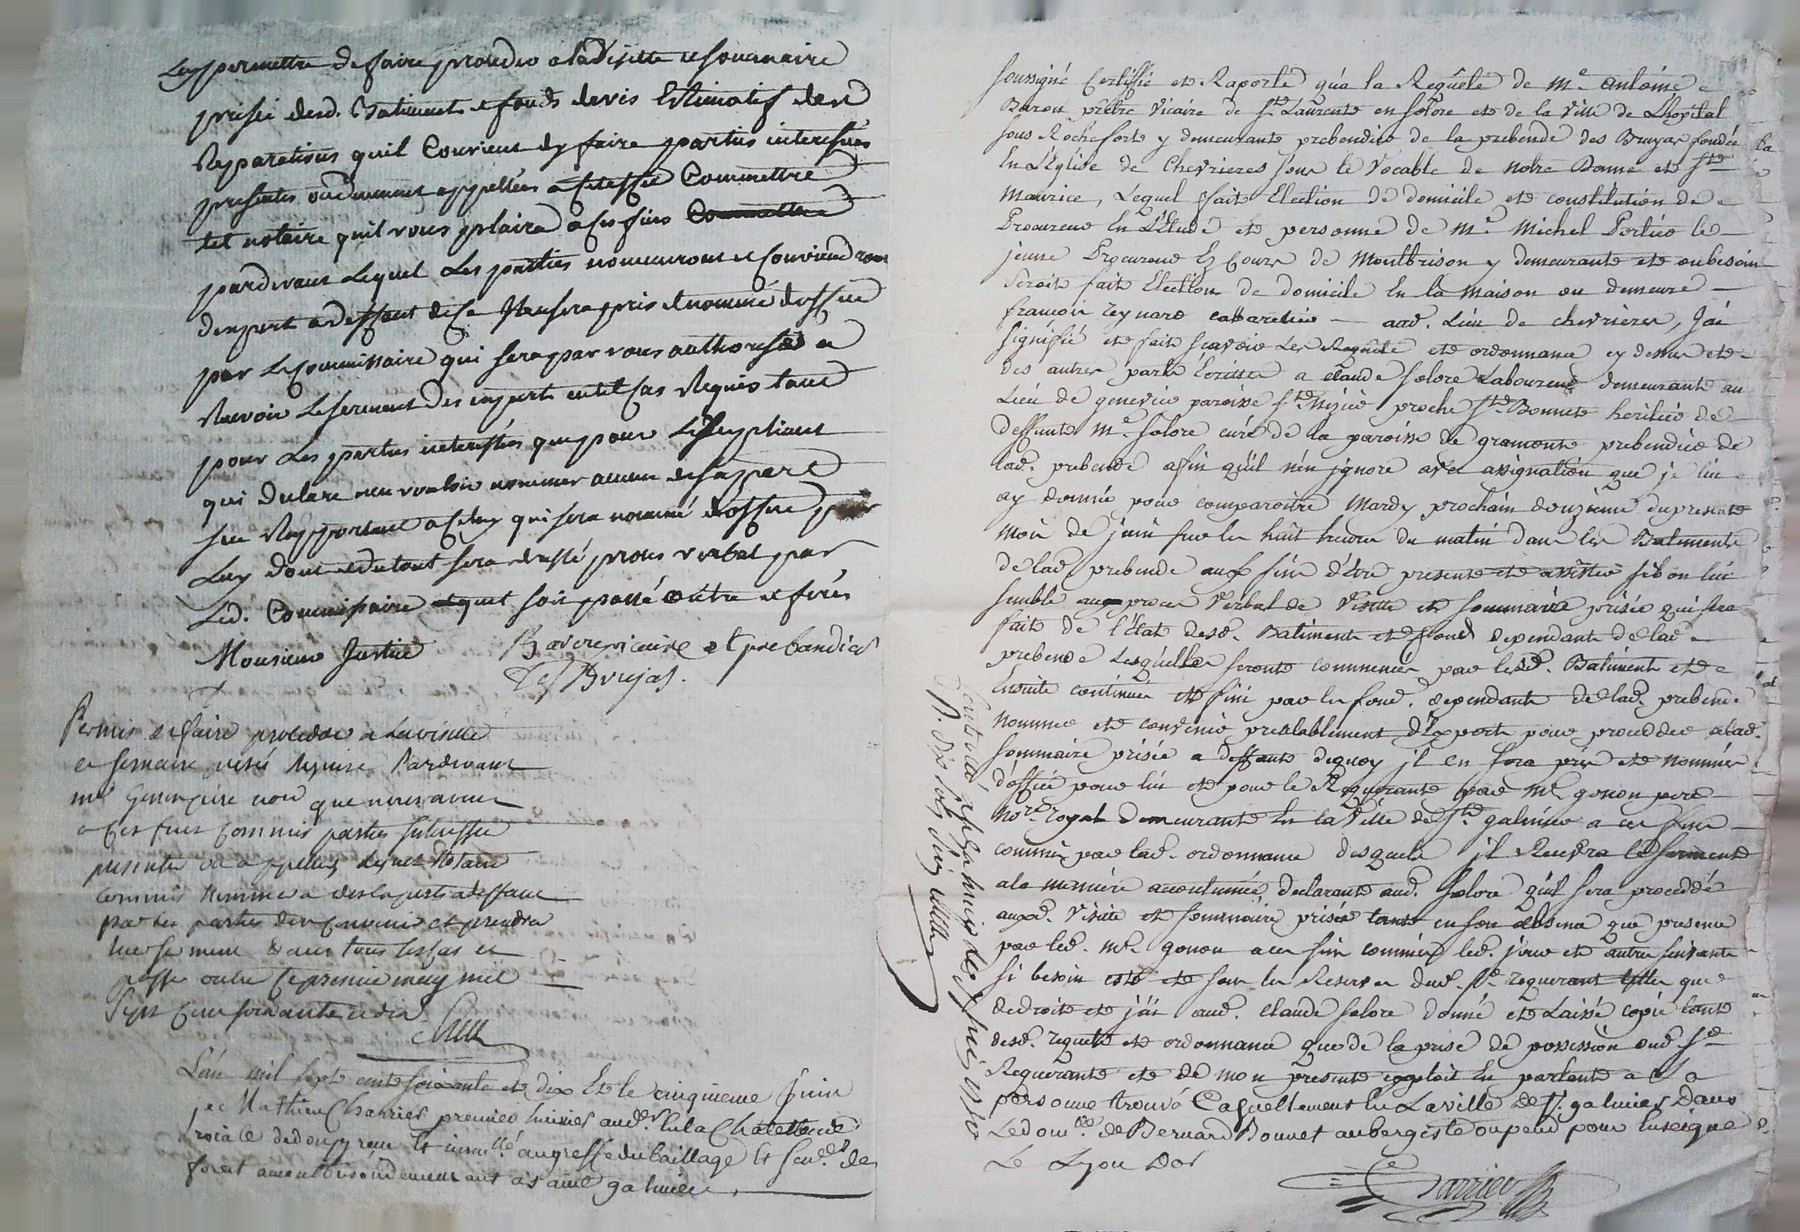 Luy permettre de faire proceder a la Visitte et sommaire
prisée desd. Batiments et fonds devis Estimatif des
Reparations quil Convient dy faire parties interessées
presentes ou duement appellées a cet effet Commettre
tel notaire quil vous plaira a ces fins Commettre
pardevant Lequel Les parties nommeront et Conviendront
dexperts a deffaut de ce Il en sera pris et nommé doffice
par Le Commissaire qui sera par vous authorisé a
Recevoir Le serment des experts en tel Cas Requis tant
pour Les parties interessées que pour Le Suppliant
qui declare nen vouloir nommer aucun de sa part
sen Rapportant a Celuy qui sera nommé doffice pour
Luy dont et du tout sera dressé proces verbal par
Led. Commissaire et quil soit passé outre et ferés
Monsieur Justice
prebandier
Des Bruyas.
Permis de faire proceder a la visitte
et sommaire prisée requise Pardevant
me que nous avons
a ces fins commis parties interessées
presentes ou appellées lequel Notaire
commis nommera des experts a deffaut
par les parties den convenir et prendra
leur serment dans tous les cas et
passé outre ce premier may mil
Sept Cent soixante et dix
L'an mil sept cents soixante et dix Et le cinquieme Juin
je Mathieu Charrier premier huissier en la Chatellenie
Roiale de donzy immllé au greffe du baillage et senéé de
foret demeurant a st galmier
soussigné Certiffie et Raporte qu'a la Requête de Me Antoine
Baron prêtre vicaire de st Laurent en Solore et de la ville de Lhopital
sous Rochefort y demeurant prebendier de la prebende des Bruyas fondée
En L'Eglise de Chevrieres sous le vocable de notre Dame et st
Maurice, Lequel fait Election de domicile et constitution de
Procureur En L'Etude et personne de Me Michel Portier le
jeune Procureur Es Cours de Montbrison y demeurant et au besoin
seroit fait Election de domicile En la maison ou demeure
françois reynard cabaretier aud. Lieu de chevrieres, J'ai
signifié et fait scavoir Les Requête et ordonnance cy dessus et
des autres parts Ecrittes a claude Solore Laboureur demeurant au
Lieu de paroisse st proche st Bonnet heritier de
deffunt Me Solore curé de la paroisse de gramont prebendier de
lad. prebende afin qu'il n'en jgnore avec assignation que je lui
ay donnée pour comparoitre Mardy prochain douzieme du present
mois de juin sur les huit heures du matin dans les Batiments
de lad. prebende aux fins d'être present et assister si bon lui
semble au proces verbal de visitte et sommaire prisée qui sera
fait de l'état desd. Batiments et fonds dependants de lad.
prebende Lesquelles seront commencées par lesd. Batiments et
Ensuite continuées et fini par les fonds dependants de lad. prebende
nommer et convenir prealablement d'Experts pour proceder a lad.
sommaire prisée a deffaut de quoy jl en sera pris et nommés
d'office pour lui et pour le Requerant par Me gonon pere
nore royal demeurant En la ville de st galmier a ces fins
commis par lad. ordonnance desquels jl Recevra le serment
a la maniere accoutumée declarant aud. Solore qu'il sera procedé
auxd. visite et sommaire prisée tant en son absence que presence
par led. Me gonon a ces fins commis led. jour et autres suivants
si besoin est et sous les Reserves dud. sr requerant telles que
de droit et j'ai aud. claude Solore donné et Laissé copie tant
desd. requete et ordonnance que de la prise de possession dud. sr
Requerant et de mon present exploit En parlant a sa
personne trouvé Casuellement En La ville de st galmier dans
Le domlle de Bernard Bonnet aubergiste ou pend pour Enseigne
Le Lyon Dor
Charrier
Controllé a st galmier le 5 juin 1770
R. dix sols six deniers